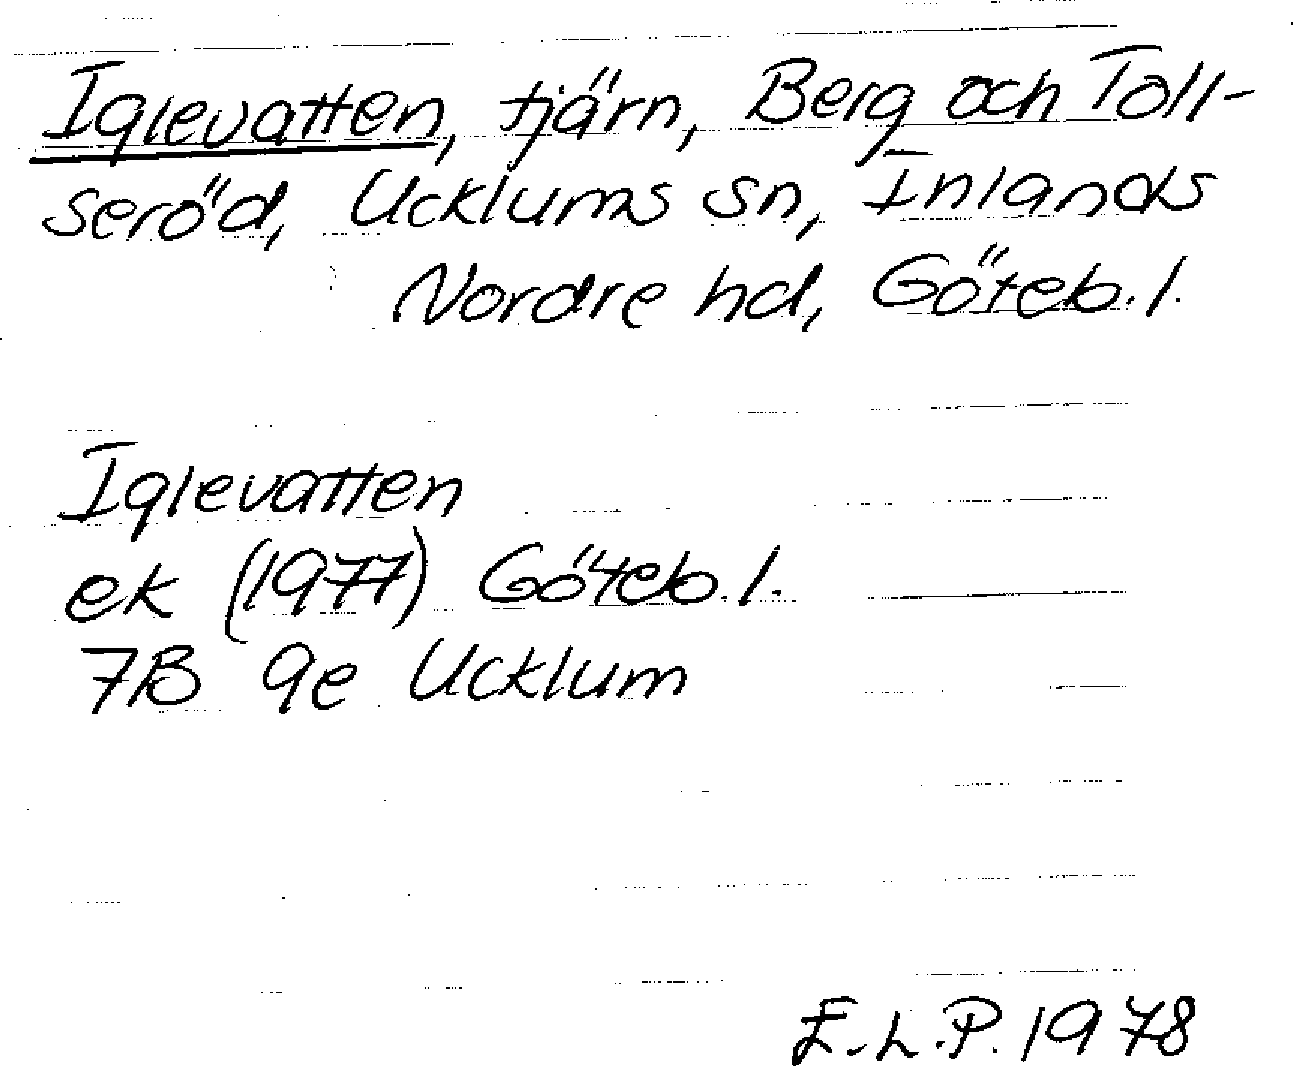 Iglevatten, tjärn, Berg och Toll-
seröd, Ucklums sn, Inlands
Nordre hd, Göteb. l.
Iglevatten
ek (1977) Göteb. l.
7B 9e Ucklum
E.L.P. 1978